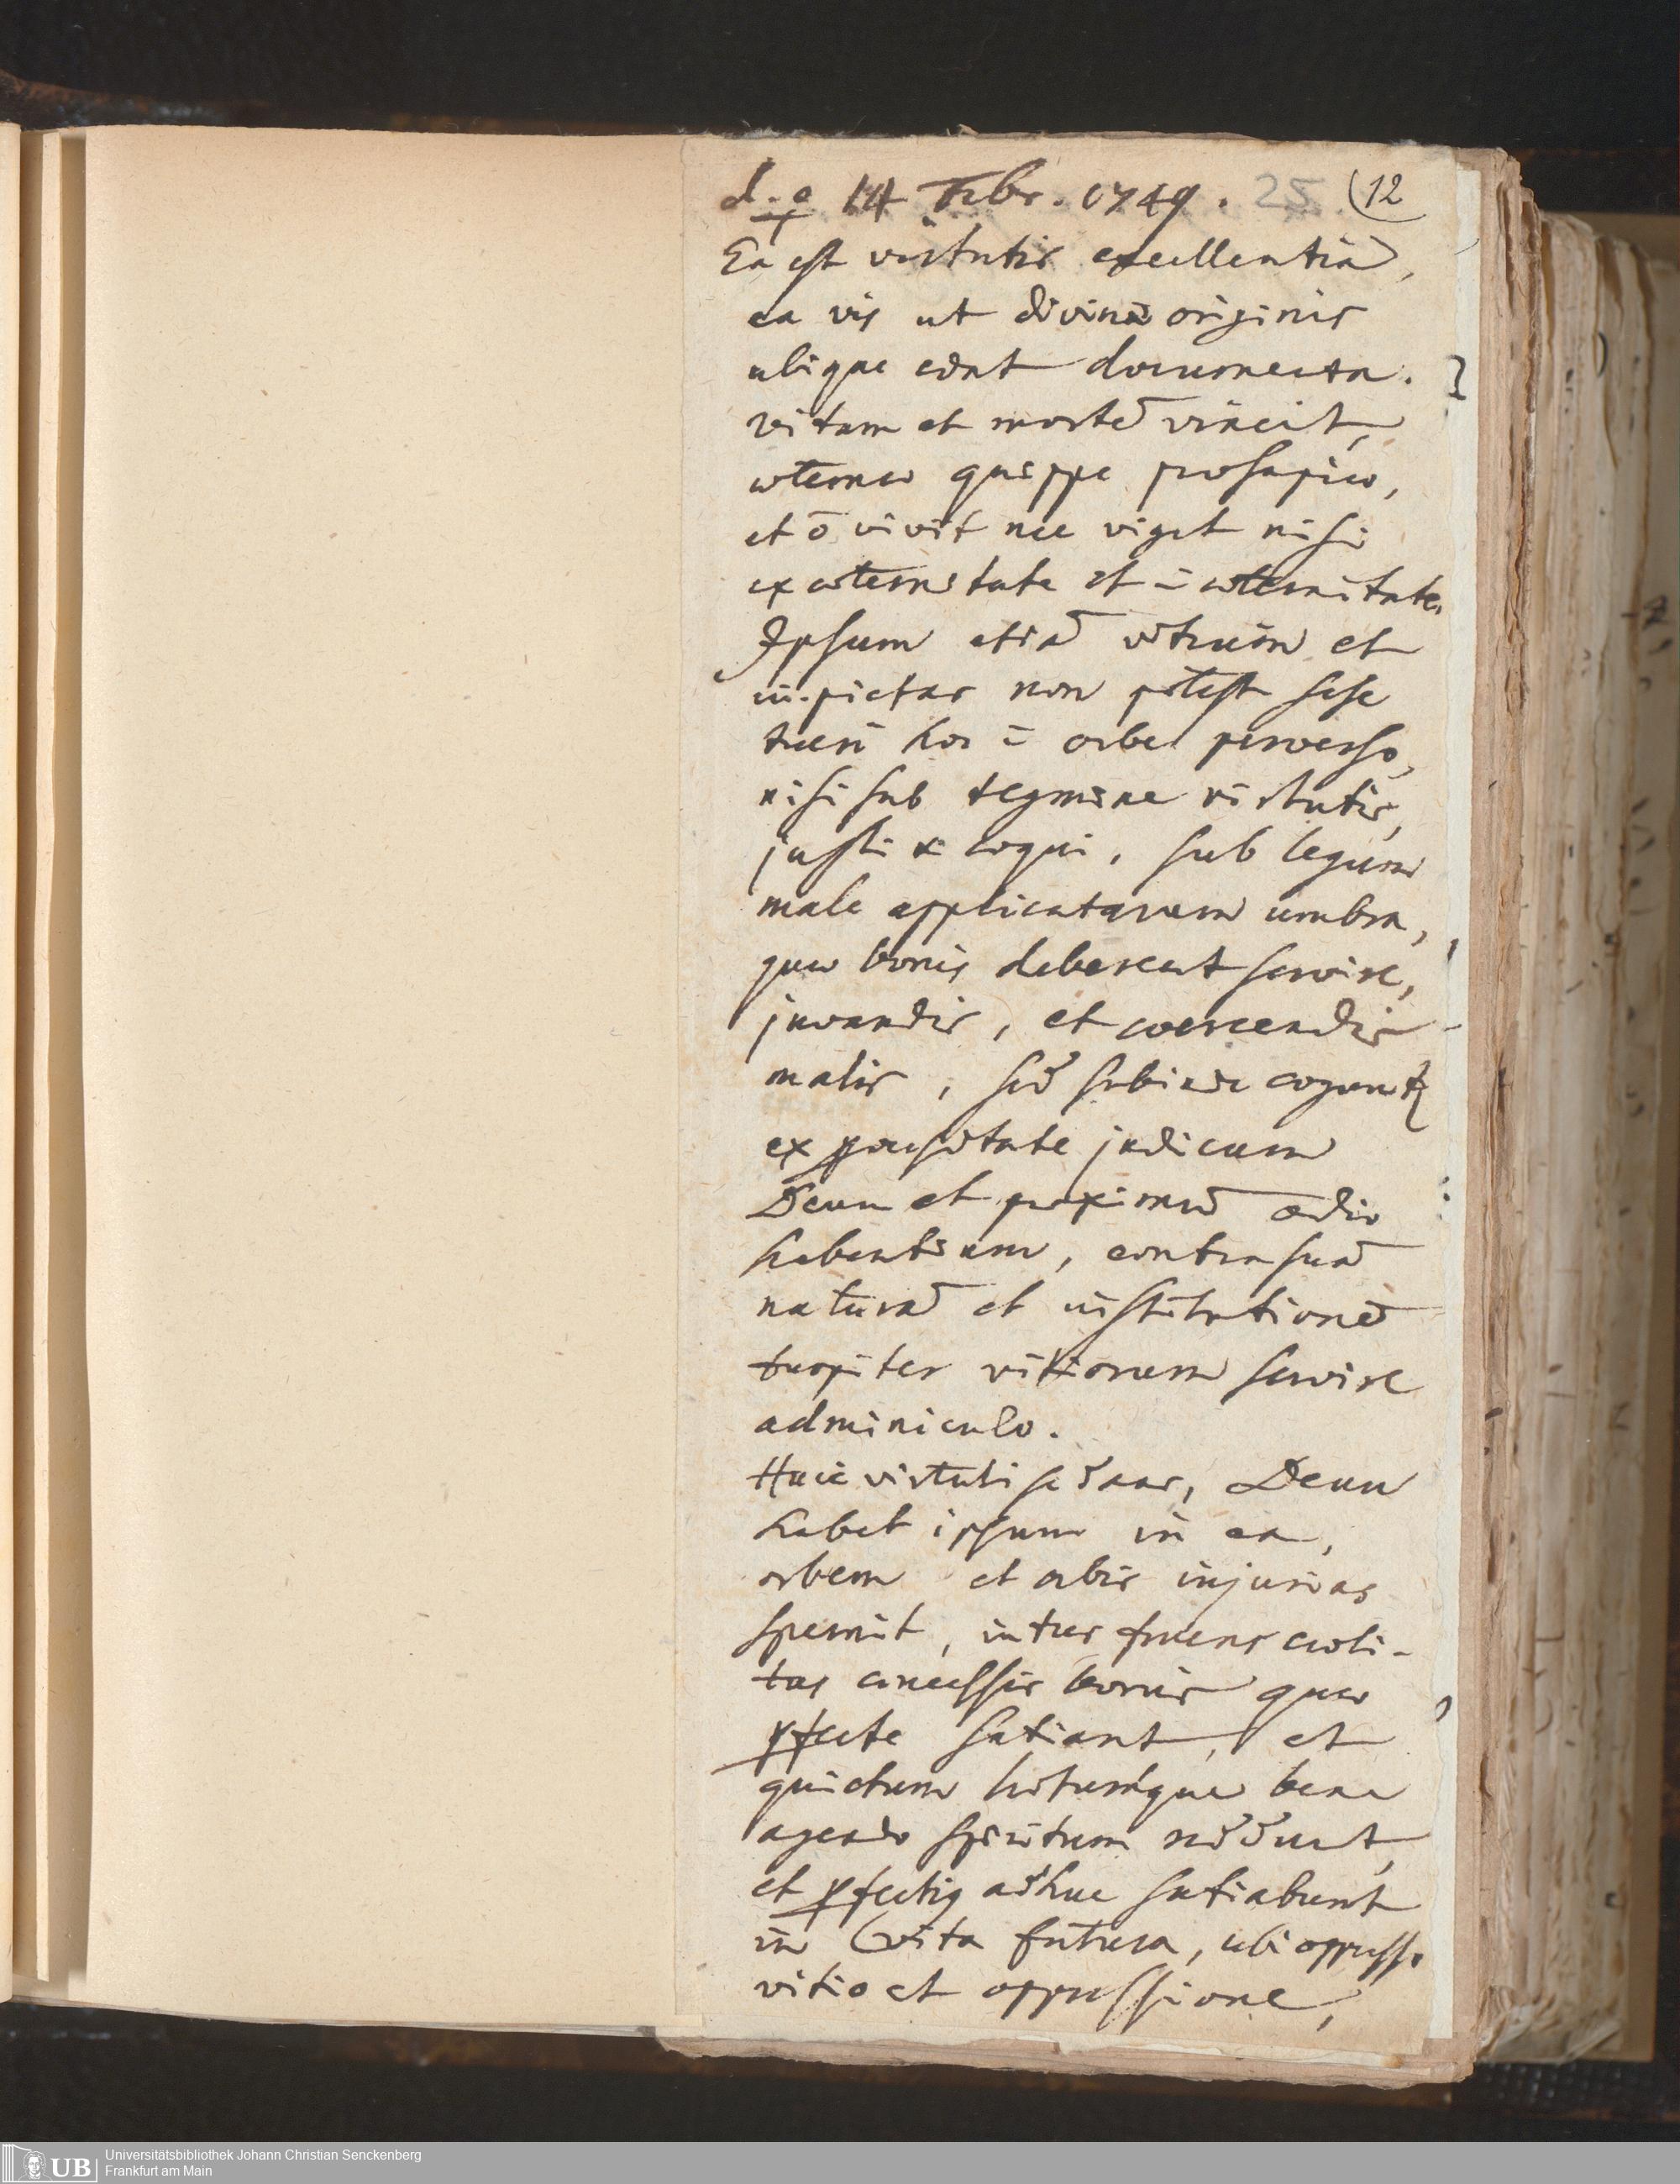 d. ♀ 14 Febr. 1749. 25 (12
Ea est virtutis excellentia,
ea vis ut divinæ originis
ubique edat documenta.
vitam et mortē vincit,
æternæ quippe prosapiæ,
et ō vivit nec viget nisi
ex æternitate et ī æternitate.
Ipsum etiā vitium et
impietas non potest sese
tueri hoc ī orbe perverso,
nisi sub tegmine virtutis,
justi & æqui, sub legum
male applicatarum umbra,
quæ bonis deberent servire,
juvandis, et coercendis
malis, sed subinde coguntr
ex perversitate judicum
Deum et proximū odio
habentium, contra suā
naturā et institutionē
turpiter vitiorum servire
adminiculo.
Huic virtuti se dans, Deum
habet ipsum in ea,
orbem et orbis injurias
spernit, intus fruens cœli-
tus concessis bonis quæ
pfecte satiant, et
quietum lætumque bene
agendo spiritum reddunt,
et pfectiq adhuc satiabunt
in vita futura, ubi oppresso
vitio et oppressione,
Universitätsbibliothek Johann Christian Senckenberg
Frankfurt am Main
UB